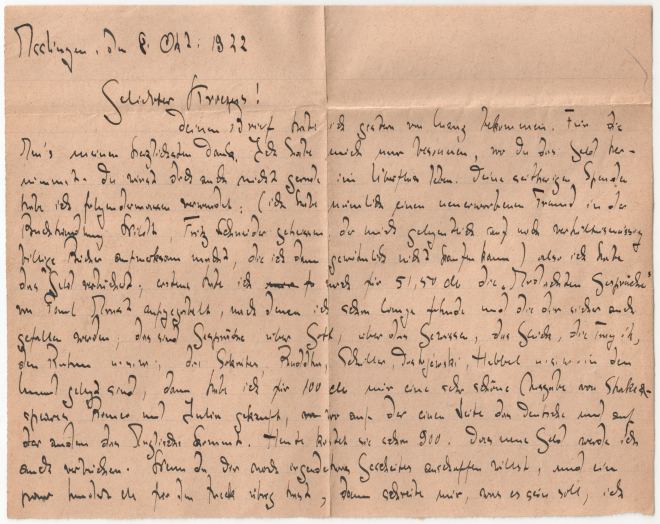 Esslingen, den 8. Okt. 1922
Geliebter !
Deinen Brief habe ich gestern von bekommen. Für die
meinen herzlichsten Dank. Ich habe mich nur besonnen, wo du das Geld her-
nimmst. Du wirst doch auch nicht gerade im Überfluss leben. Deine seitherigen Spenden
habe ich folgendermassen verwendet: (ich habe nämlich einen neuerworbenen Freund in der
Buchhandlung, Fritz Schneider geheissen der mich gelegentlich auf noch verhältnismässig
billige Bücher aufmerksam macht, die ich dann gewöhnlich nicht kaufen kann) also ich habe
das Geld verbücht, erstens habe ich mich für 51,50 die "Erdachten Gespräche"
von Paul Ernst aufgegabelt, nach denen ich schon lange fahnde und die dir sicher auch
gefallen werden, das sind Gespräche über Gott, über das Gewissen, das Glück, die Tragik,
den Ruhm u.s.w., die Sokrates, Buddha, Schiller, Dostojewski, Hebbel u.s.w. in den
Mund gelegt sind, dann habe ich für 100 mir eine sehr schöne Ausgabe von Shake-
speares Romeo und Julia gekauft, wo auf der einen Seite das Deutsche und auf
der andern das Englische kommt. Heute kostet sie schon 900. Das neue Geld werde ich
auch verbüchen. Wenn du dir noch irgendetwas Gescheites anschaffen willst, und ein
paar hundert für den Zweck übrig hast, dann schreibe mir, was es sein soll, ich